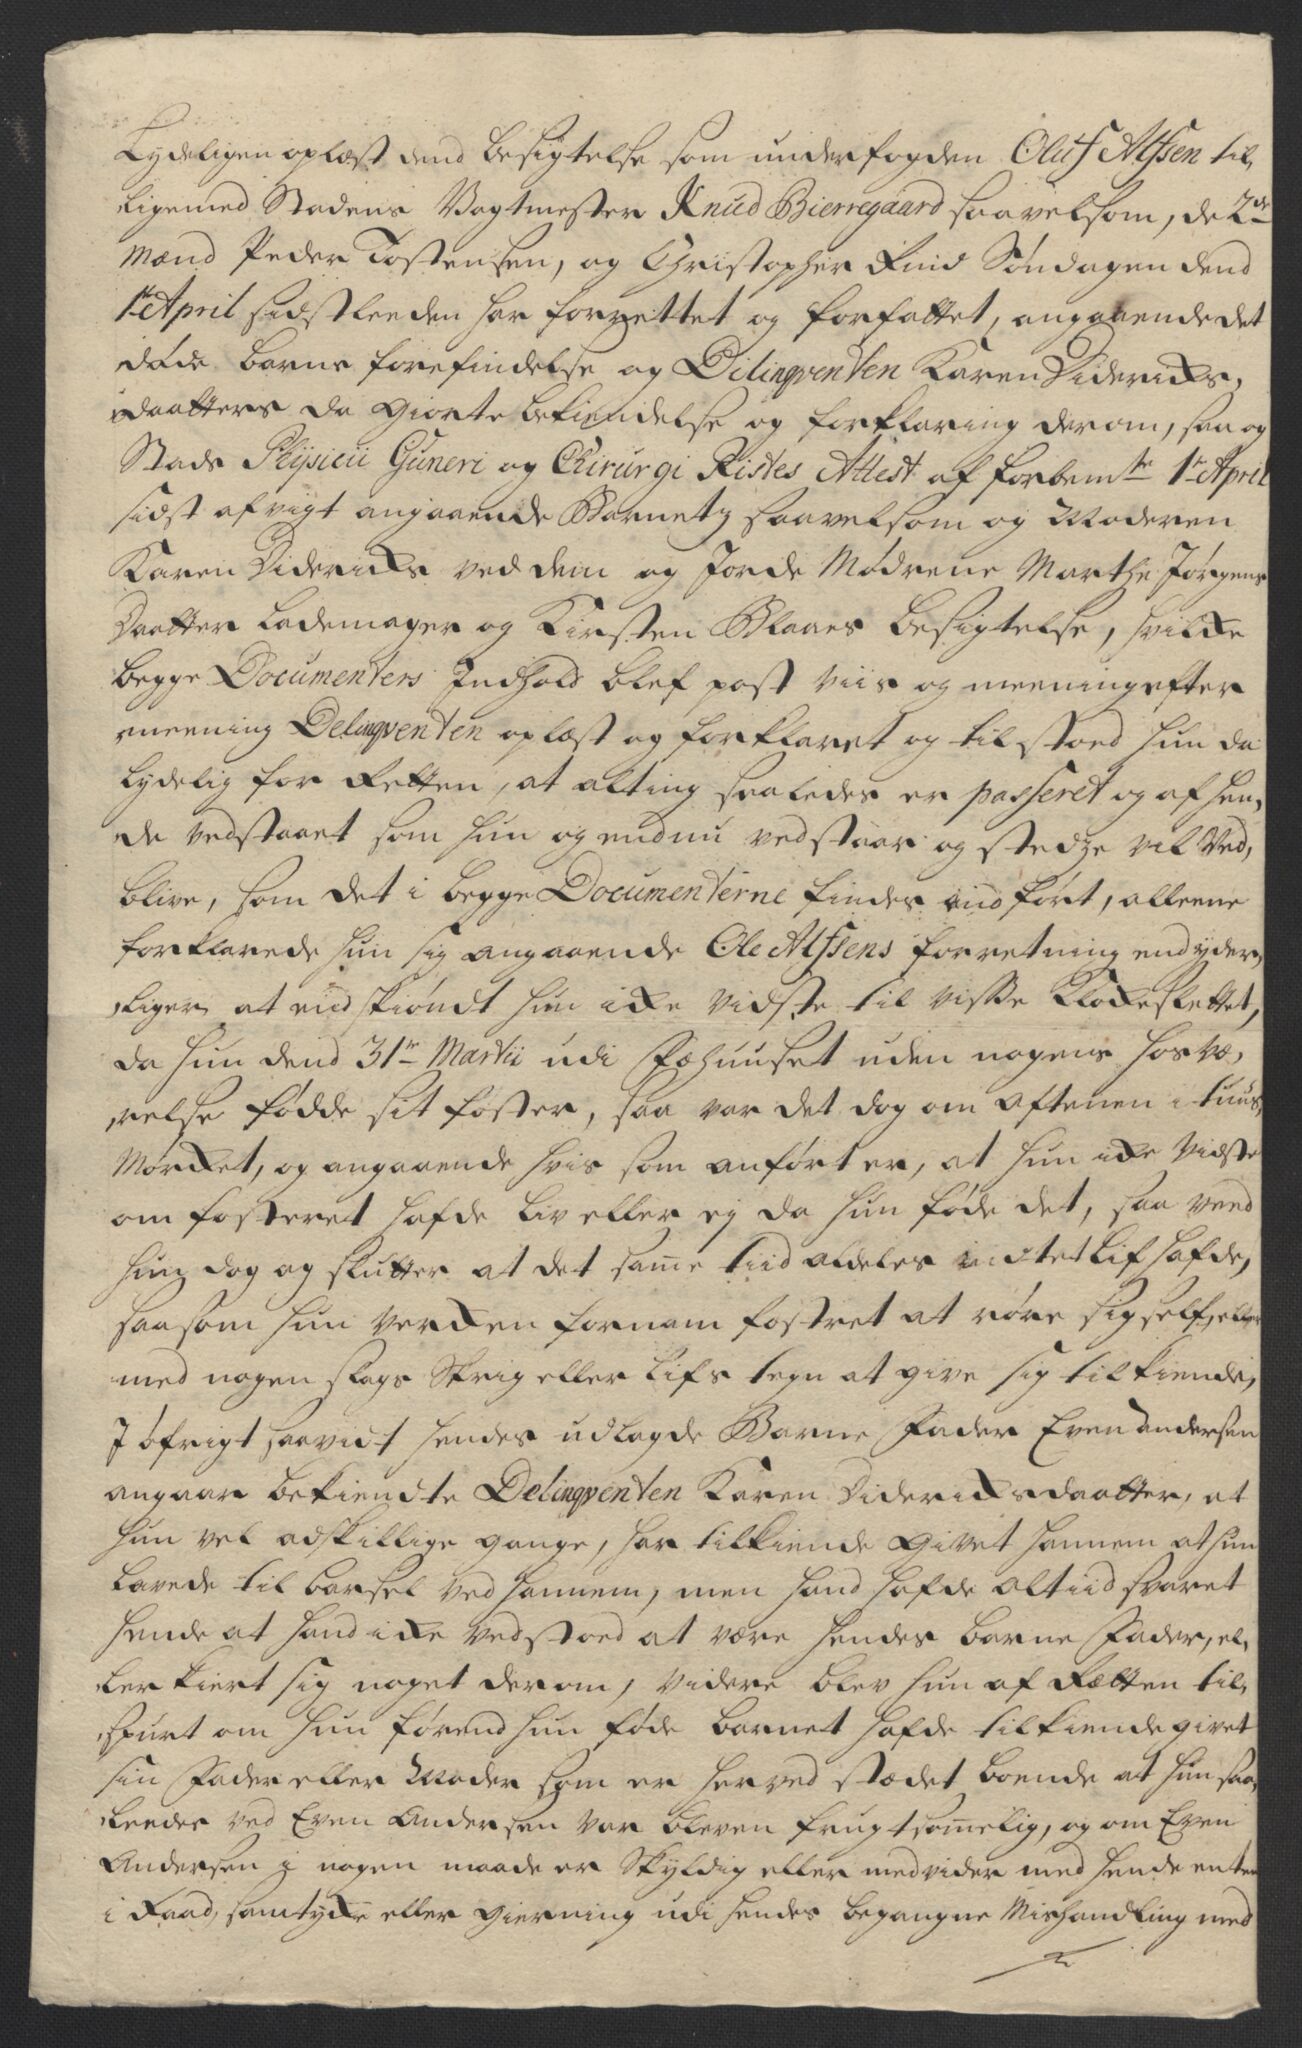 Lydeligen oplæst dend besigtelse som underfogden Oluf Alfsen til,
ligemed Stadens Vagtmester Knud Bierregaard saavelsom, de 2de
Mænd Peder Tostensen, og Christopher Ruid Søndagen dend
1te April sidstleeden har forrettet og forfattet, angaaende det
døde barns forefindelse og Dilinqventen Karen Didericks,
daatters da giorte bekiendelse og forklaring derom, saa og
Stads Phijsici Guneri og Chirurgi Ristes Attest af forbemte 1te April
sidst afvigt angaaende Barnetz saavelsom og Moderen
Karen Didericks ved dem og Jorde Mødrene Marthe Jørgens
Daatter Lademager og Kirsten Blaaes besigtelse, hvilcke
begge Documenters Indhold blef post viis og meening efter
meening Delinqventen oplæst og forklaret og tilstoed hun da
lydelig for Retten, at alting saaledes er passeret og af hen,
de vedstaaet som hun og endnu vedstaar og stedze vil ved,
blive, som det i begge Documenterne findes indført, alleene
forklarede hun sig angaaende Ole Alfsens forretning end yder,
liger, at endskiøndt hun icke vidste til visse Klockeslettet,
da hun dend 31te Martii udi Fæhuuset uden nogens hosvæ,
relse fødde sit foster, saa var det dog om Aftenen i tuus,
Mørcket, og angaaende hvis som anført er, at hun icke vidste
om fosteret hafde liv eller ej da hun føde det, saa meend
hun dog og slutter at det same tiid aldeles intet lif hafde,
saasom hun vercken fornam fostret at røre sig self, eller
med nogen slags Skrig eller lifs tegn at give sig tilkiende,
I øfrigt saavidt hendes udlagde Barne Fader Even Andersen
angaar bekiendte Delinqventen Karen Didericksdaatter, at
hun vel adskillige gange, har tilkiende givet hannem at hun
lavede til barsel ved hannem, men hand hafde altiid svaret
hende at hand icke vedstoed at være hendes barne Fader, el,
ler kiert sig noget derom, videre blev hun af Rætten til,
spurt om hun førend hun føde barnet hafde tilkiende givet
sin Fader eller Moder som er her ved stædet boende at hun saa,
leedes ved Even Andersen var bleven frugtsomelig, og om Even
Andersen i nogen maade er Skyldig eller medvider med hende enten
i Raad, samtycke eller gierning udi hendes begangne Mishandling med